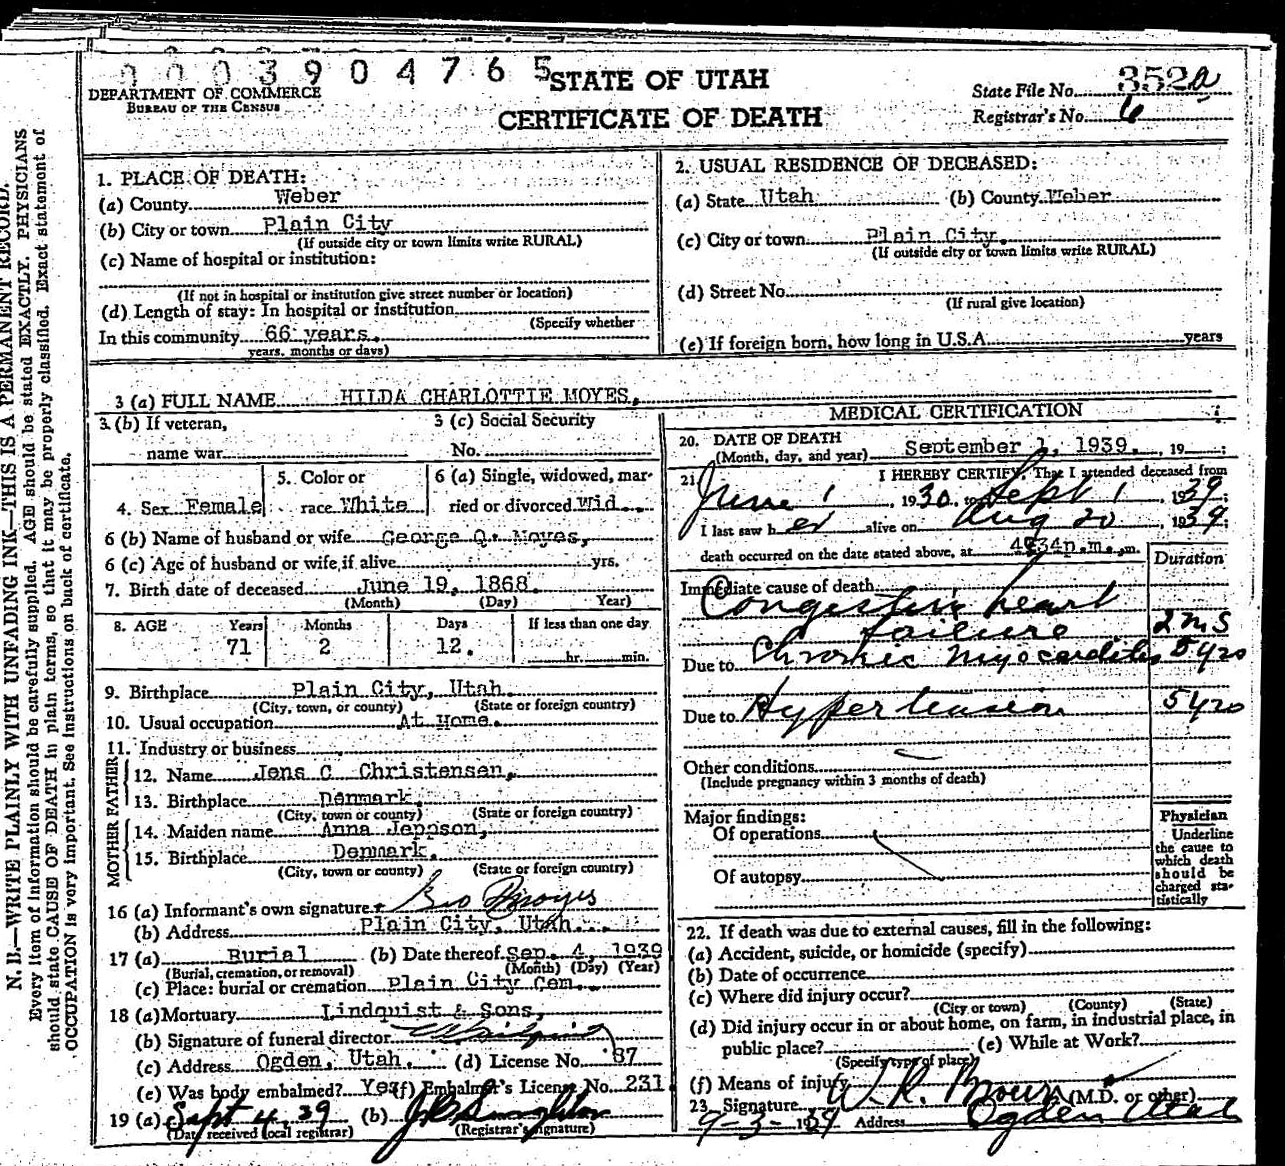 0003904765
STATE OF UTAH
CERTIFICATE OF DEATH
DEPARTMENT OF COMMERCE
BUREAU OF THE CENSUS
State File No. 352a
Registrar's No. 6
N. B.—WRITE PLAINLY WITH UNFADING INK—THIS IS A PERMANENT RECORD.
Every item of information should be carefully supplied. AGE should be stated EXACTLY. PHYSICIANS
should state CAUSE OF DEATH in plain terms, so that it may be properly classified. Exact statement of
OCCUPATION is very important. See instructions on back of certificate.
1. PLACE OF DEATH:
(a) County Weber
(b) City or town Plain City
(If outside city or town limits write RURAL)
(c) Name of hospital or institution:
(If not in hospital or institution give street number or location)
(d) Length of stay: In hospital or institution
(Specify whether
In this community 66 years.
years, months or days)
2. USUAL RESIDENCE OF DECEASED:
(a) State Utah (b) County Weber
(c) City or town Plain City.
(If outside city or town limits write RURAL)
(d) Street No.
(If rural give location)
(e) If foreign born, how long in U.S.A. years
3 (a) FULL NAME HILDA CHARLOTTIE MOYES,
3. (b) If veteran,
name war
3 (c) Social Security
No.
4. Sex Female
5. Color or
race White
6 (a) Single, widowed, mar-
ried or divorced Wid.
6 (b) Name of husband or wife George Q. Moyes,
6 (c) Age of husband or wife, if alive yrs.
7. Birth date of deceased June 19, 1868
(Month) (Day) Year)
8. AGE Years Months Days If less than one day
71 2 12. hr. min.
9. Birthplace Plain City, Utah.
(City, town, or county) (State or foreign country)
10. Usual occupation At Home.
11. Industry or business
FATHER
12. Name Jens C Christensen,
13. Birthplace Denmark.
(City, town or county) (State or foreign country)
MOTHER
14. Maiden name Anna Jeppson,
15. Birthplace Denmark.
(City, town or county) (State or foreign country)
16 (a) Informant's own signature Geo Moyes
(b) Address Plain City, Utah.
17 (a) Burial (b) Date thereof Sep. 4, 1939
(Burial, cremation, or removal) (Month) (Day) (Year)
(c) Place: burial or cremation Plain City Cem.
18 (a) Mortuary Lindquist & Sons,
(b) Signature of funeral director
(c) Address Ogden, Utah. (d) License No. 87
(e) Was body embalmed? Yes (f) Embalmer's License No. 231
19 (a) Sept 4, 39 (b)
(Date received local registrar) (Registrar's signature)
MEDICAL CERTIFICATION
20. DATE OF DEATH
(Month, day, and year) September 1, 1939. 19
21. I HEREBY CERTIFY, That I attended deceased from
June 1 1930, to Sept 1, 1939;
I last saw her alive on Aug 20, 1939;
death occurred on the date stated above, at 4:34 p.m. m.
Duration
Immediate cause of death
Congestive heart
failure 2 ms
Due to Chronic Myocarditis 5 yrs
Due to Hypertension 5 yrs
Other conditions
(Include pregnancy within 3 months of death)
Major findings:
Of operations
Of autopsy
Physician
Underline
the cause to
which death
should be
charged sta-
tistically
22. If death was due to external causes, fill in the following:
(a) Accident, suicide, or homicide (specify)
(b) Date of occurrence
(c) Where did injury occur?
(City or town) (County) (State)
(d) Did injury occur in or about home, on farm, in industrial place, in
public place? (e) While at Work?
(Specify type of place)
(f) Means of injury
23. Signature W. R. (M.D. or other)
9-3-1939 Address Ogden Utah